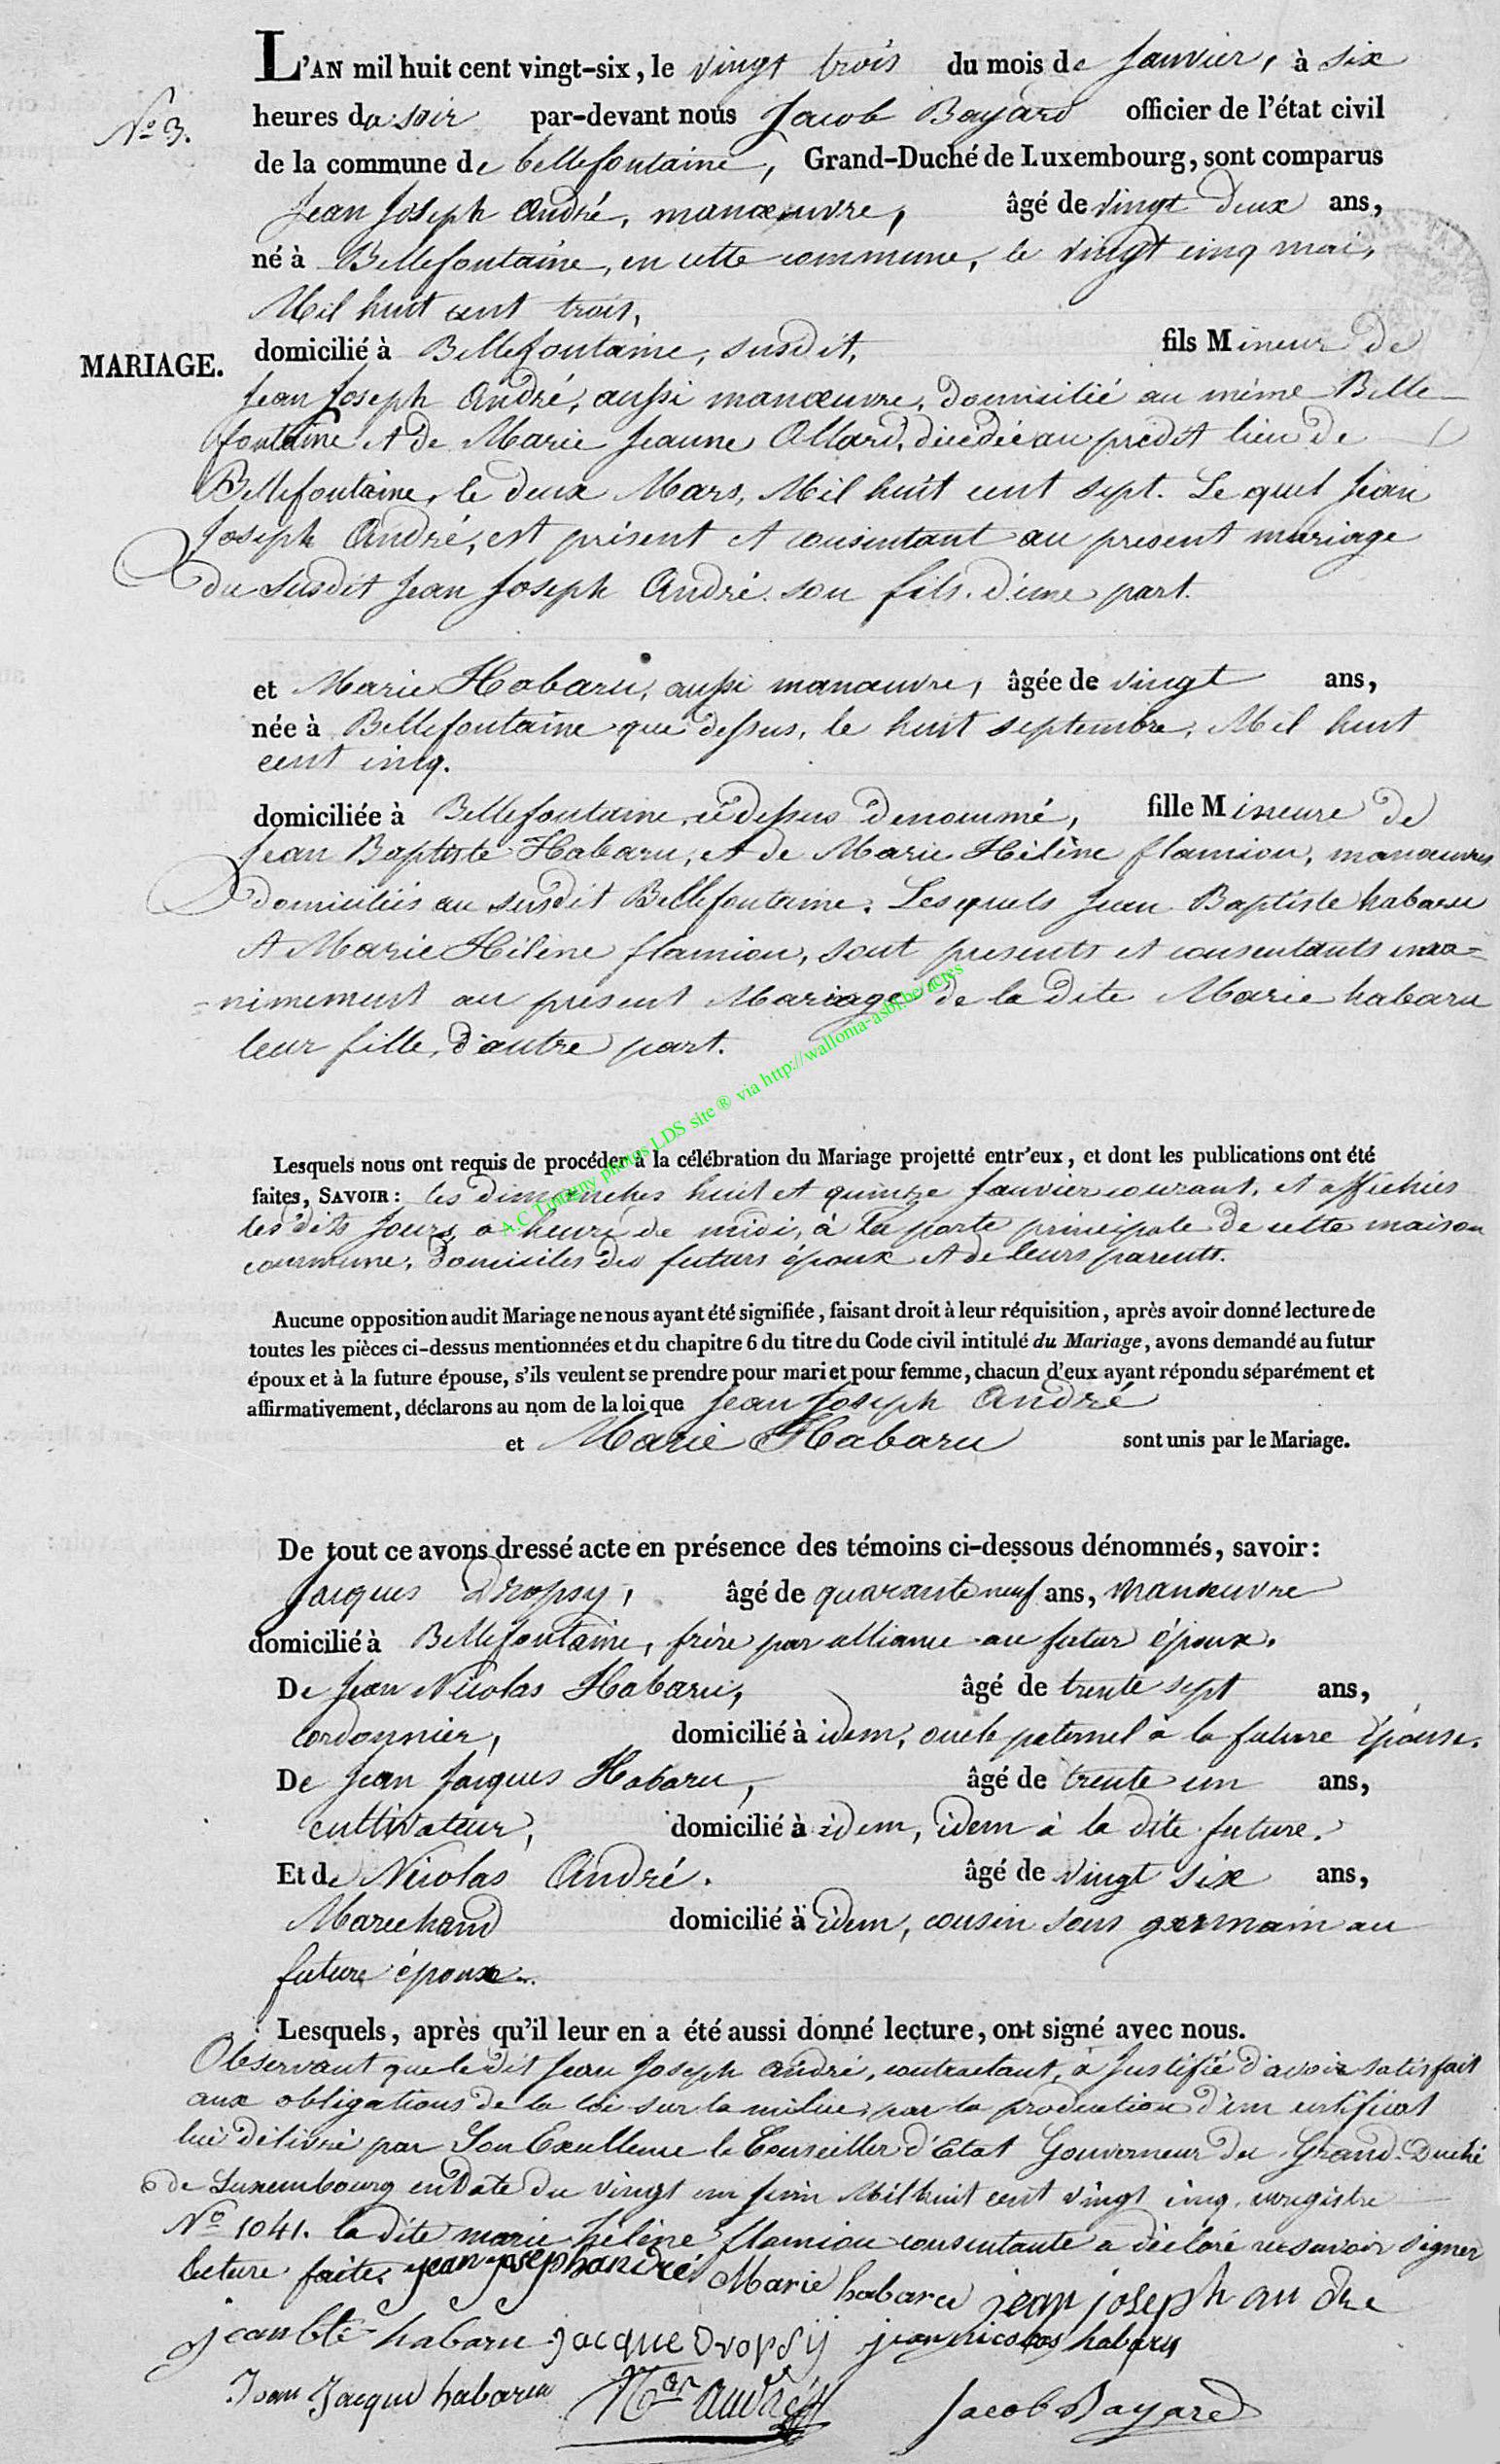 L'AN mil huit cent vingt-six, le vingt trois du mois de Janvier, à six
N.º 3. heures du soir par-devant nous Jacob Bayard officier de l'état civil
de la commune de bellefontaine, Grand-Duché de Luxembourg, sont comparus
Jean Joseph André, manœuvre, âgé de vingt deux ans,
né à Bellefontaine, en cette commune, le vingt cinq mai,
Mil huit cent trois,
MARIAGE. domicilié à Bellefontaine, susdit, fils Mineur de
Jean Joseph André, aussi manœuvre, domicilié au même Belle-
fontaine et de Marie Jeanne Allard, dicédée au prédit lieu de
Bellefontaine, le deux Mars, Mil huit cent sept. Le quel Jean
Joseph André, est présent et consentant au present mariage
du susdit Jean Joseph André son fils. d'une part.
et Marie Habaru, aussi manœuvre, âgée de vingt ans,
née à Bellefontaine que dessus, le huit septembre, Mil huit
cent cinq.
domiciliée à Bellefontaine, ci dessus dénommé, fille Mineure de
Jean Baptiste Habaru, et de Marie Hélène flamion, manœuvres
domiciliés au susdit Bellefontaine. Lesquels Jean Baptiste habaru
et Marie Hélène flamion, sont presents et consentants una=
=nimement au présent Mariage de la dite Marie habaru
leur fille, d'autre part.
A.C. Tintigny photos LDS site ® via http://wallonia-asbl.be/actes
Lesquels nous ont requis de procéder à la célébration du Mariage projetté entr'eux, et dont les publications ont été
faites, SAVOIR: les dimanches huit et quinze Janvier courant, et affichées
les dits Jours, à heure de midi, à la porte principale de cette maison
commune, domiciles des futurs époux et de leurs parents.
Aucune opposition audit Mariage ne nous ayant été signifiée, faisant droit à leur réquisition, après avoir donné lecture de
toutes les pièces ci-dessus mentionnées et du chapitre 6 du titre du Code civil intitulé du Mariage, avons demandé au futur
époux et à la future épouse, s'ils veulent se prendre pour mari et pour femme, chacun d'eux ayant répondu séparément et
affirmativement, déclarons au nom de la loi que Jean Joseph André
et Marie Habaru sont unis par le Mariage.
De tout ce avons dressé acte en présence des témoins ci-dessous dénommés, savoir:
Jacques Dropsy, âgé de quarante neuf ans, manœuvre
domicilié à Bellefontaine, frère par alliance au futur époux.
De Jean Nicolas Habaru, âgé de trente sept ans,
cordonnier, domicilié à idem, oncle paternel à la future épouse.
De Jean Jacques Habaru, âgé de trente un ans,
cultivateur, domicilié à idem, idem à la dite future.
Et de Nicolas André. âgé de vingt six ans,
Marechand domicilié à idem, cousin sous germain au
future époux.
Lesquels, après qu'il leur en a été aussi donné lecture, ont signé avec nous.
Observant que le dit Jean Joseph André, contractant, a Justifié d'avoir satisfait
aux obligations de la loi sur la milice, par la production d'un certificat
lui délivré par Son Excellence le Conseiller d'Etat Gouverneur du Grand-Duché
de Luxembourg en date du vingt un juin Mil huit cent vingt cinq, enregistre
N.º 1041. la dite marie hélène flamion consentante a déclaré ne savoir signer
lecture faite. jean joseph andré Marie habaru jean joseph andre
jean bte habaru jacque Dropsy jean nicolas habaru
Jean Jacque habaru Nas André Jacob Bayard